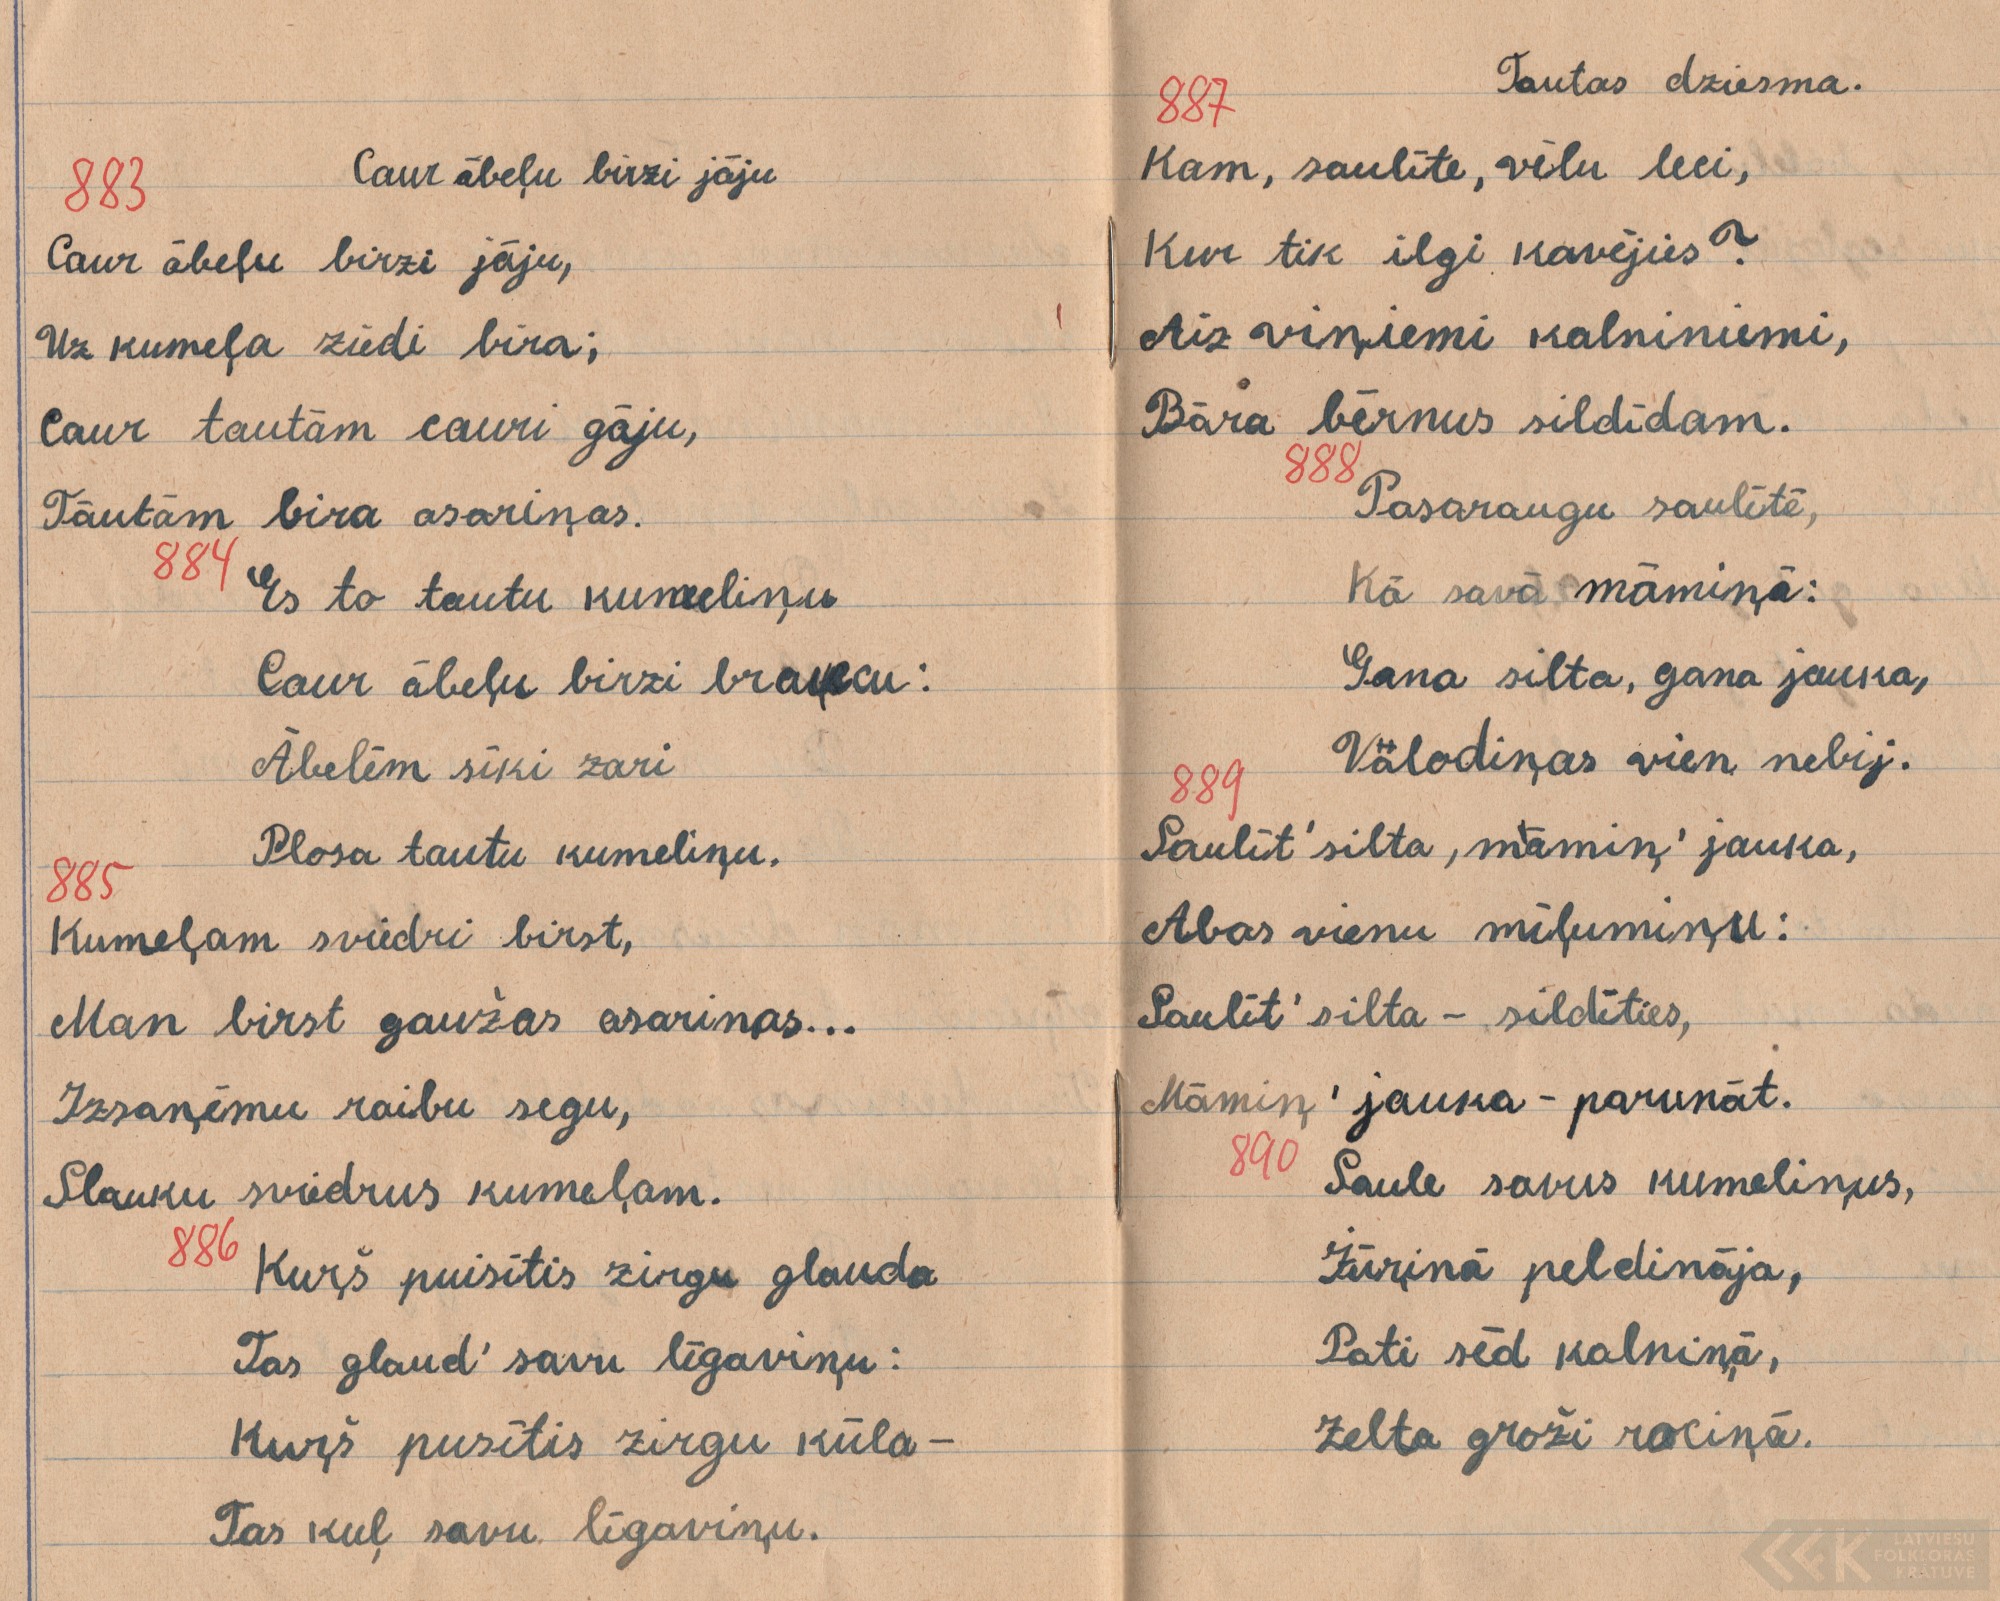 883
Caur ābeļu birzi jāju
Caur ābeļu birzi jāju,
Uz kumeļa ziedi bira;
Caur tautām cauri gāju,
Tāutām bira asariņas.
884
Es to tautu kumeliņu
Caur ābeļu birzi braucu:
Ābelēm sīki zari
Plosa tautu kumeliņu.
885
Kumeļam sviedri birst,
Man birst gaužas asariņas...
Izsaņēmu raibu segu,
Slauku sviedrus kumeļam.
886
Kuŗš puisītis zirgu glauda
Tas glaud' savu līgaviņu:
Kuŗš pusītis zirgu kūla-
Tas kuļ savu līgaviņu.
887
Tautas dziesma.
Kam, saulīte, vēlu leci,
Kur tik ilgi kavējies?
Aiz viņiemi kalniniemi,
Bāra bērnus sildīdam.
888
Pasaraugu saulītē,
Kā savā māmiņā:
Gana silta, gana jauka,
Välodiņas vien nebij.
889
Saulīt' silta, māmiņ' jauka,
Abas vienu mīļumiņu:
Saulīt' silta - sildīties,
Māmiņ' jauka - parunāt.
890
Saule savus kumeliņus,
Jūŗinā peldināja,
Pati sēd kalniņā,
Zelta groži rociņā.
LATVIEŠU
FOLKLORAS
KRĀTUVE